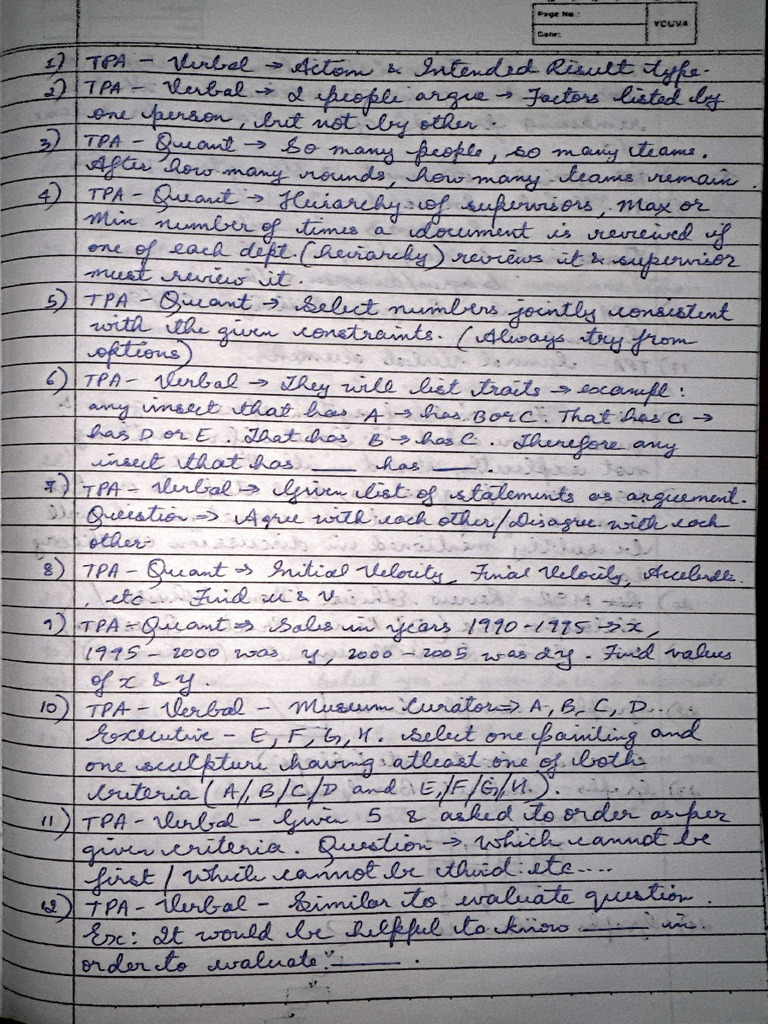 Page No.:
Date:
YOUVA
1) TPA - Verbal → Action & Intended Result type.
2) TPA - Verbal → 2 people argue → Factors listed by
one person, but not by other
3) TPA - Quant → So many people, so many teams.
After how many rounds, how many teams remain.
4) TPA - Quant → Heirarchy of supervisors, Max or
Min number of times a document is reviewed if
one of each dept. (heirarchy) reviews it & supervisor
must review it.
5) TPA - Quant → Select numbers jointly consistent
with the given constraints. (Always try from
options)
6) TPA - Verbal → They will list traits → example:
any insect that has A → has B or C. That has C →
has D or E. That has B → has C Therefore any
insect that has ___ has ___.
7) TPA - Verbal → Given list of statements as arguement.
Question → Agree with each other/Disagree with each
other
8) TPA - Quant → Initial Velocity, Final Velocity,
, etc - Find u & v
9) TPA - Quant → Sales in years 1990-1995 → x,
1995 - 2000 was y, 2000 - 2005 was 2y. Find values
of x & y.
10) TPA - Verbal - Museum Curator → A, B, C, D.
Executive - E, F, G, H. Select one painting and
one sculpture having atleast one of both
criteria (A/B/C/D and E/F/G/H.).
11) TPA - Verbal - Given 5 & asked to order as per
given criteria. Question → Which cannot be
first / Which cannot be third etc....
12) TPA - Verbal - Similar to evaluate question.
Ex: It would be helpful to know ___ in
order to evaluate ___.